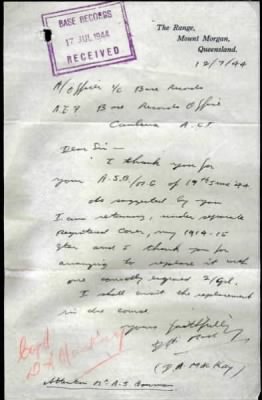 BASE RECORDS
17 JUL 1944
RECEIVED
The Range,
Mount Morgan,
Queensland.
12/7/44
A/Officer i/c Base Records
A.I.F Base Records Office
Canberra A.C.T
Dear Sir —
I thank you for
your A.S.B/ of 19th June '44
As suggested by you
I am returning, under separate
Registered Cover, my 1914-15
Star and I thank you for
arranging to replace it with
one correctly engraved
I shall await the replacement
in due course
yours faithfully
Attention